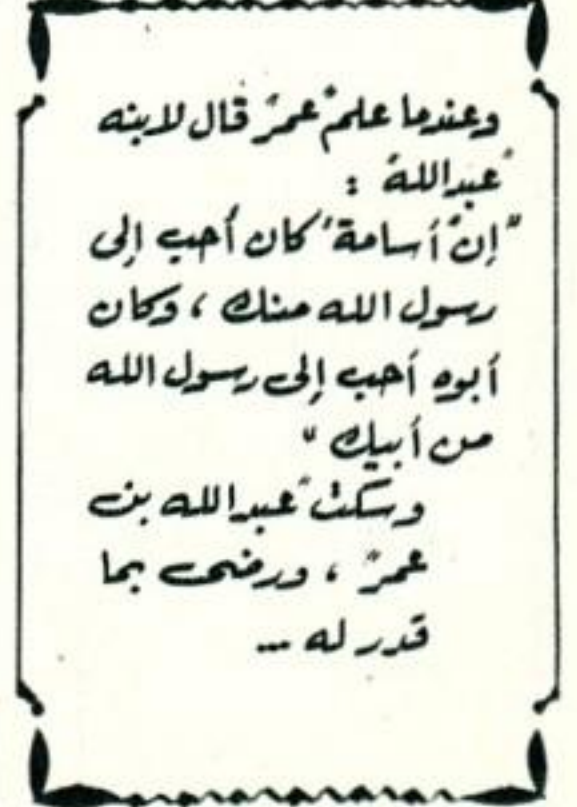 وعندما علم "عمر" قال لابنه
"عبدالله" :
"إن "أسامة" كان أحب إلى
رسول الله منك ، وكان
أبوه أحب إلى رسول الله
من أبيك "
وسكت "عبدالله بن
عمر" ، ورضى بما
قدر له ...